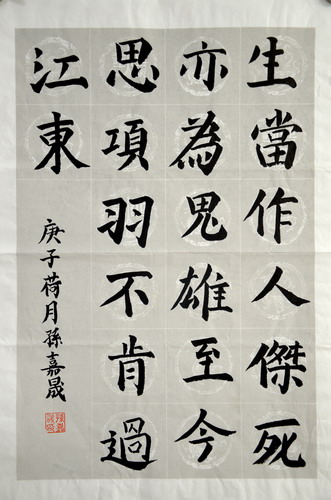 生當作人傑死
亦為鬼雄至今
思項羽不肯過
江東
庚子荷月孫嘉晟